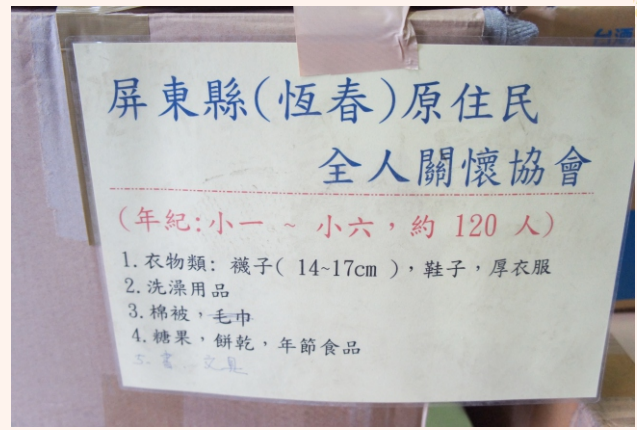 屏東縣(恆春)原住民
全人關懷協會
(年紀:小一 ~ 小六，約 120 人)
1.衣物類: 襪子( 14~17cm )，鞋子，厚衣服
2.洗澡用品
3.棉被，毛巾
4.糖果，餅乾，年節食品
5. 書 文具